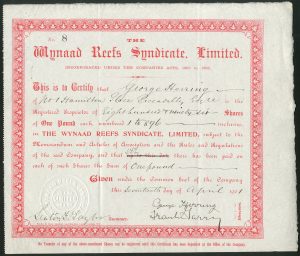 No. 8
THE
Wynaad Reefs Syndicate, Limited.
INCORPORATED UNDER THE COMPANIES ACTS, 1862 to
This is to Certify that George Herring
of No 1 Hamilton Place Piccadilly is the
Registered Proprietor of Eight hundred & ninety six Shares
of One Pound each numbered 1 to 896 inclusive, in
THE WYNAAD REEFS SYNDICATE, LIMITED, subject to the
Memorandum and Articles of Association and the Rules and Regulations
of the said Company, and that there has been paid on
each of such Shares the Sum of One pound
Given under the Common Seal of the Company
this Seventeenth day of April
Secretary.
Directors.
No Transfer of any of the above-mentioned Shares can be registered until this Certificate has been deposited at the Office of the Company.